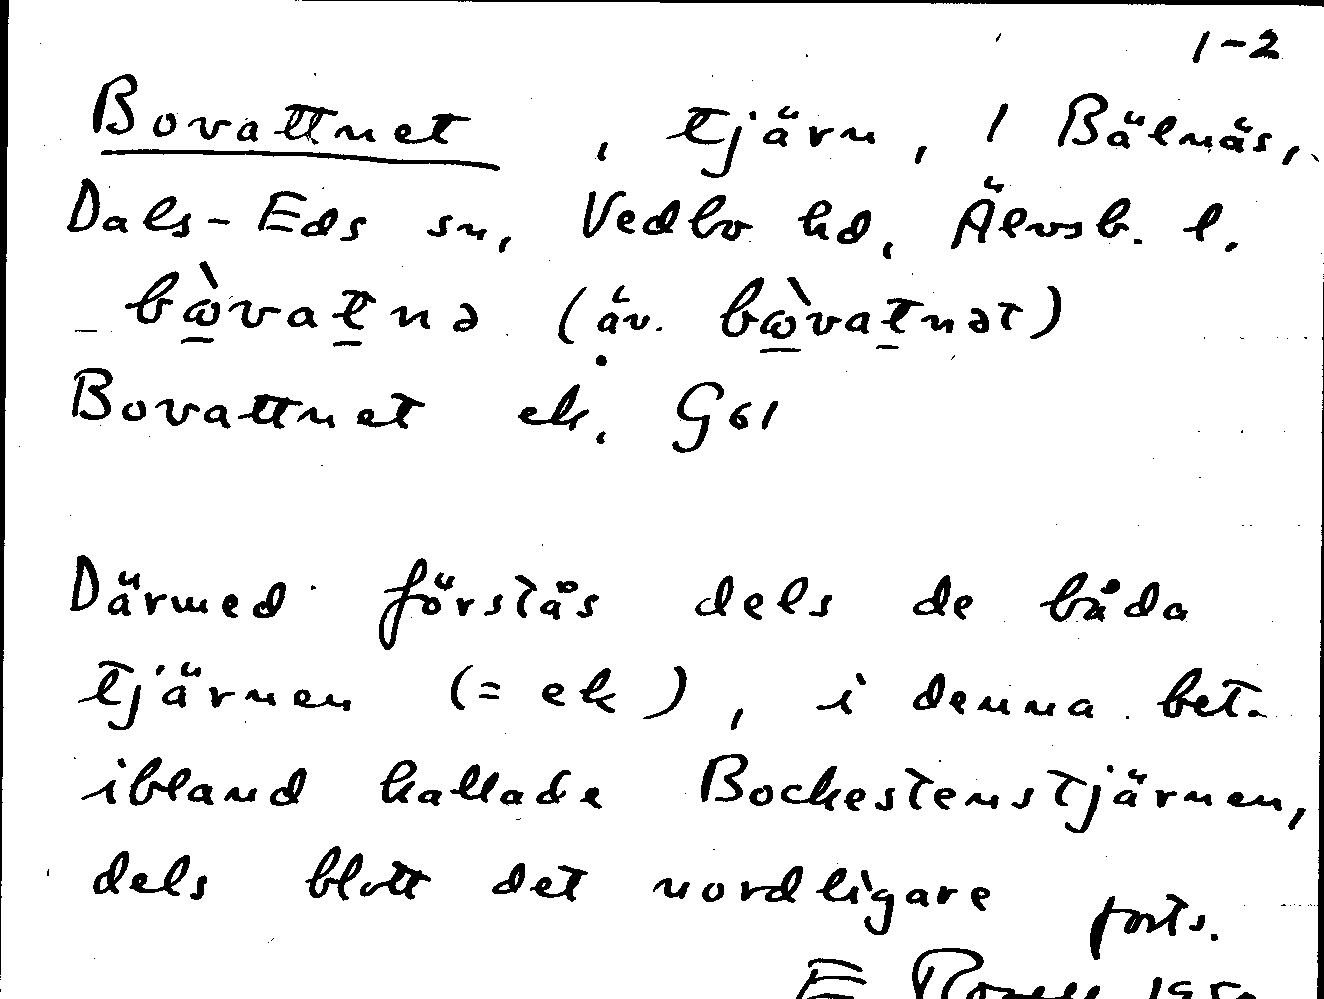 1-2
Bovattnet, tjärn, 1 Bälnäs,
Dals-Eds sn, Vedbo hd, Älvsb. l.
bὼvatnə (äv. bὼvatnət)
Bovattnet ek. G61
Därmed förstås dels de båda
tjärnen (= ek), i denna bet.
ibland kallade Bockestenstjärnen,
dels blott det nordligare forts.
E